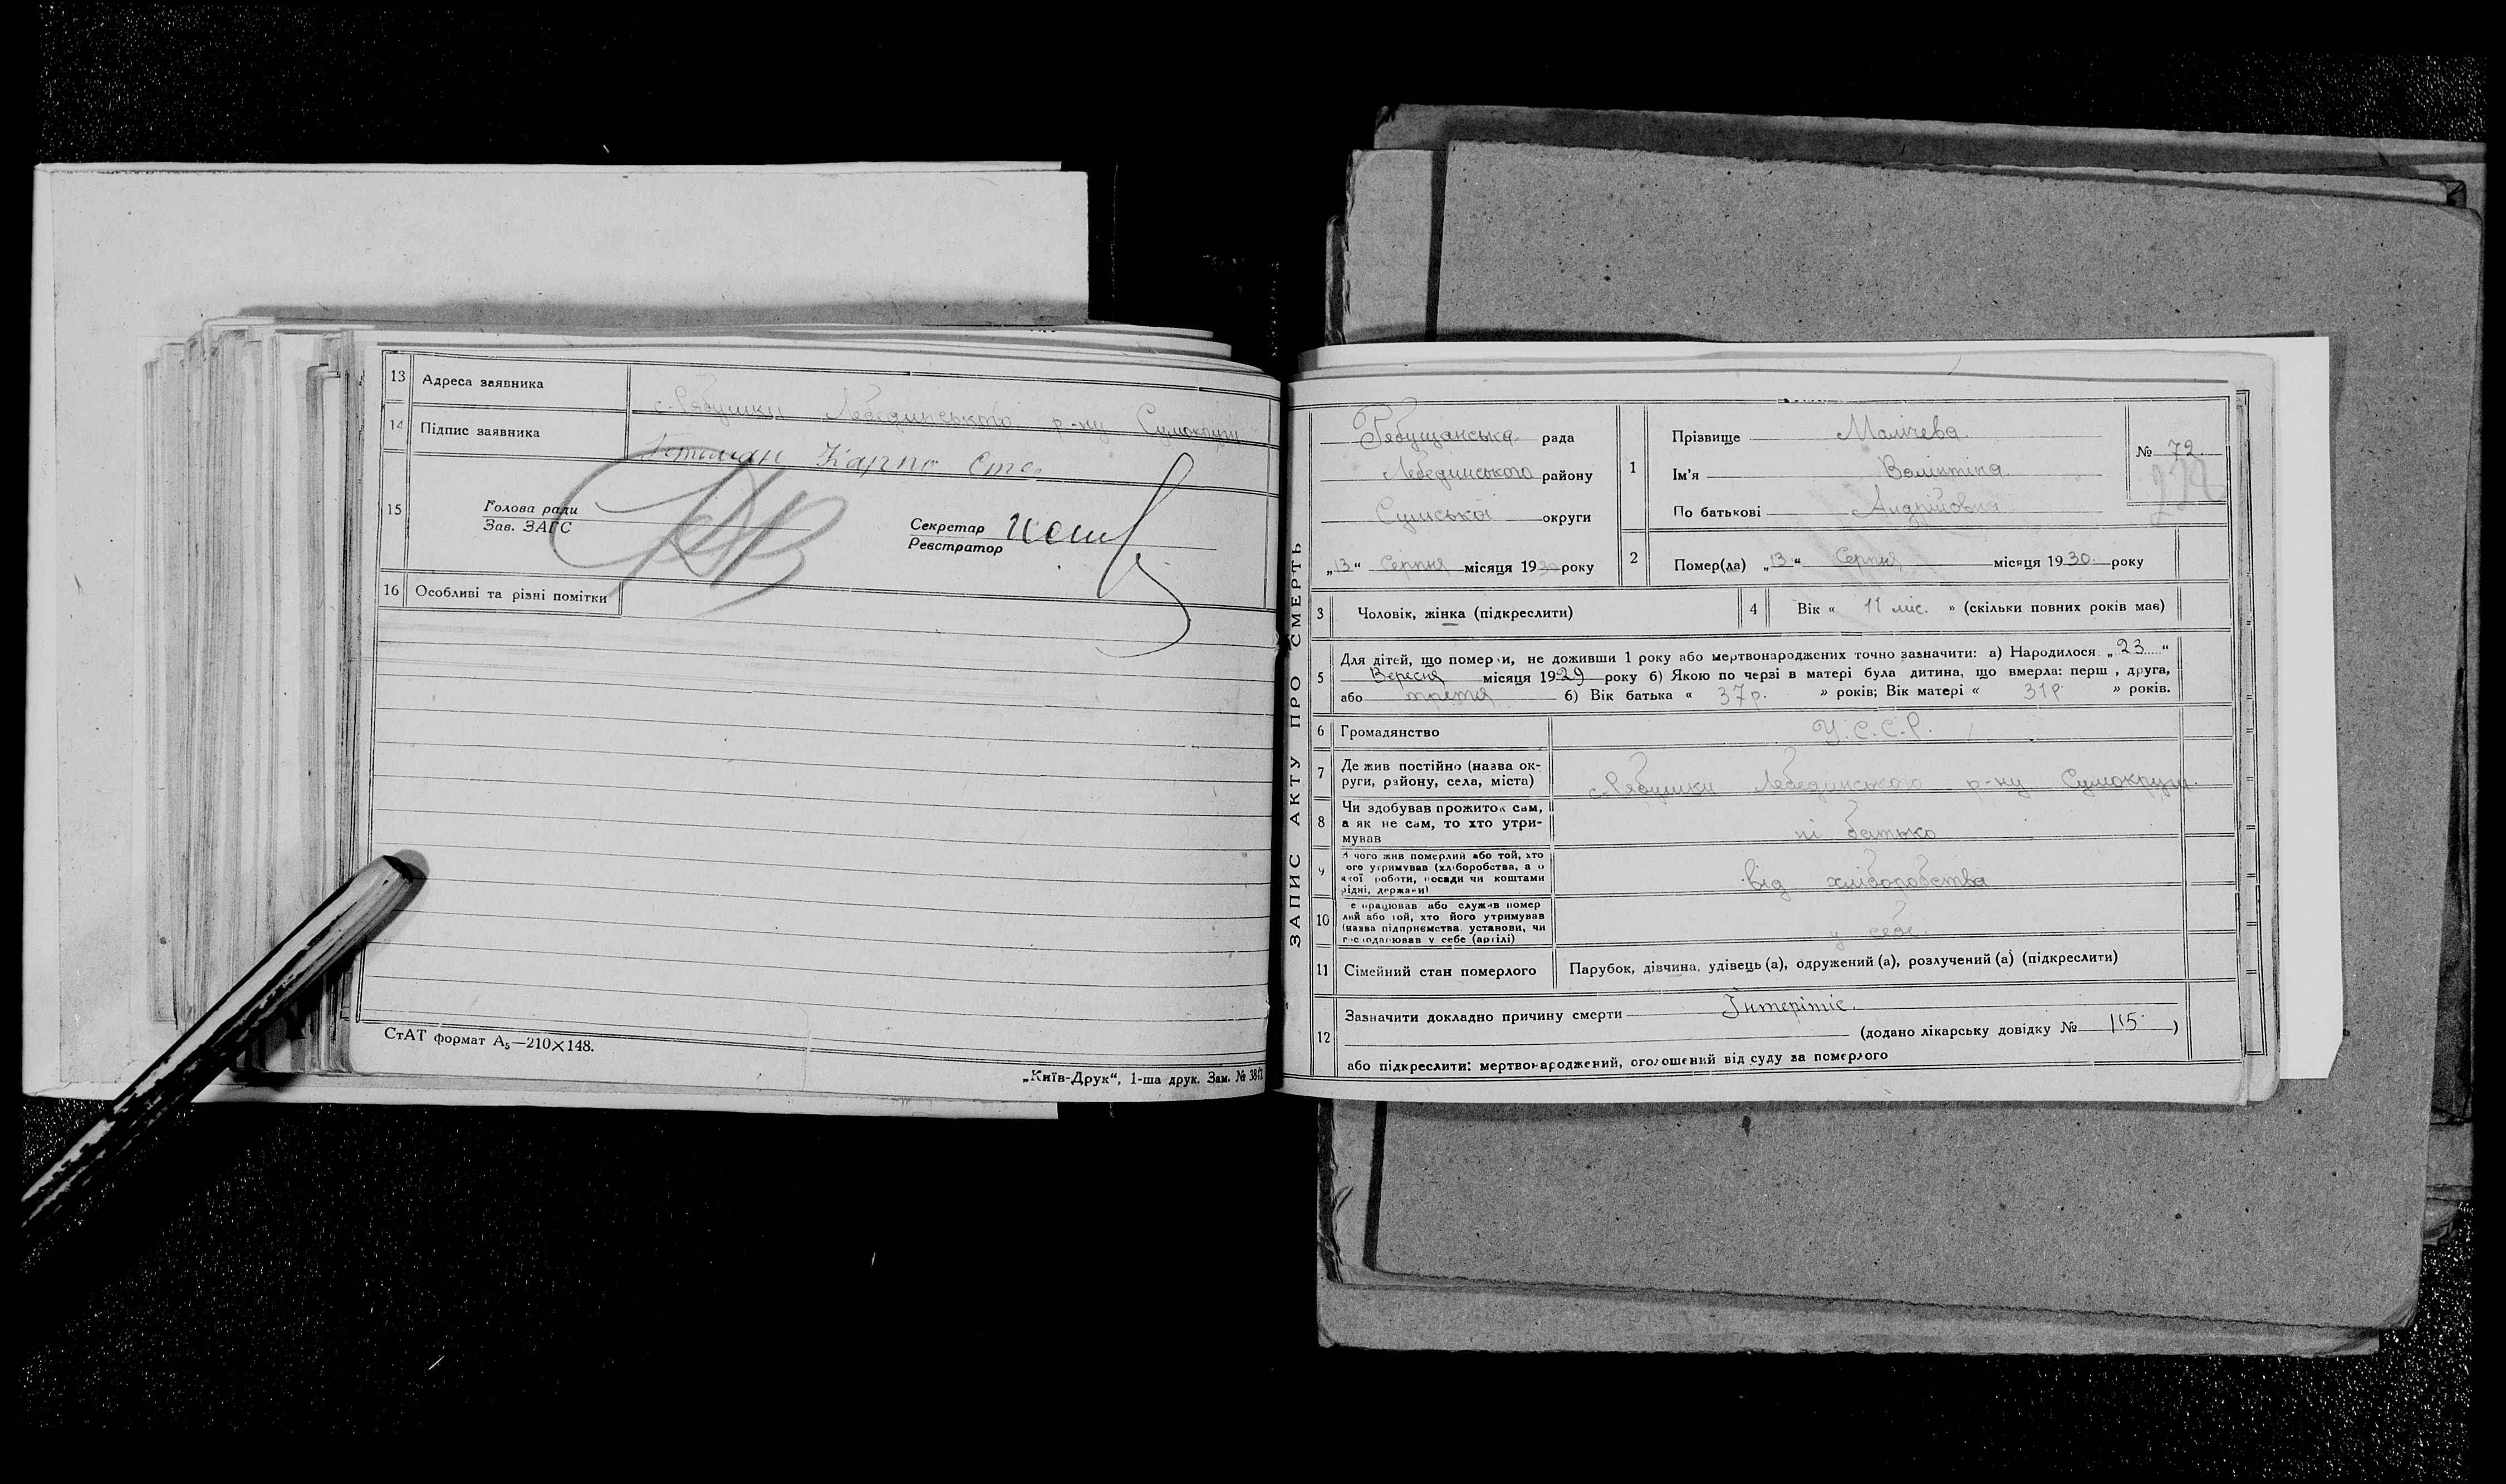 13 Адреса заявника с. Рябушки Лебединського р-ну Сумокруги
14 Підпис заявника Карпо
15 Голова ради
Зав. ЗАГС
Секретар
Реєстратор
16 Особливі та різні помітки
СтАТ формат А5—210×148.
„Київ-Друк“, 1-ша друк. Зам. №
ЗАПИС АКТУ ПРО СМЕРТЬ
Рябущанська рада
Лебединського району
Сумської округи
„13“ Серпня місяця 1930 року
1 Прізвище Малічева.
Ім'я Валінтіна.
По батькові Андрійовна
№ 72.
2 Помер(ла) „13“ Серпня місяця 1930. року
3 Чоловік, жінка (підкреслити)
4 Вік « 11 міс. » (скільки повних років має)
5 Для дітей, що померли, не доживши 1 року або мертвонароджених точно зазначити: а) Народилося „23“
Вересня місяця 1929 року б) Якою по черзі в матері була дитина, що вмерла: перш , друга,
або третя б) Вік батька « 37 р. » років; Вік матері « 31 р. » років.
6 Громадянство У.С.С.Р.
7 Де жив постійно (назва ок-
руги, району, села, міста) с. Рябушки Лебединського р-ну Сумокруги.
8 Чи здобував прожиток сам,
а як не сам, то хто утри-
мував ні батько
9 З чого жив померлий або той, хто
ого утримував (хліборобства, а о
якої роботи, посади чи коштами
рідні, держави) від хліборобства
10 е працював або служив помер
лий або той, хто його утримував
(назва підприємства, установи, чи
господарював у себе (артілі) у себе.
11 Сімейний стан померлого Парубок, дівчина, удівець (а), одружений (а), розлучений (а) (підкреслити)
12 Зазначити докладно причину смерти Інтерітіс.
(додано лікарську довідку № 115 )
або підкреслити: мертвонароджений, оголошений від суду за померлого